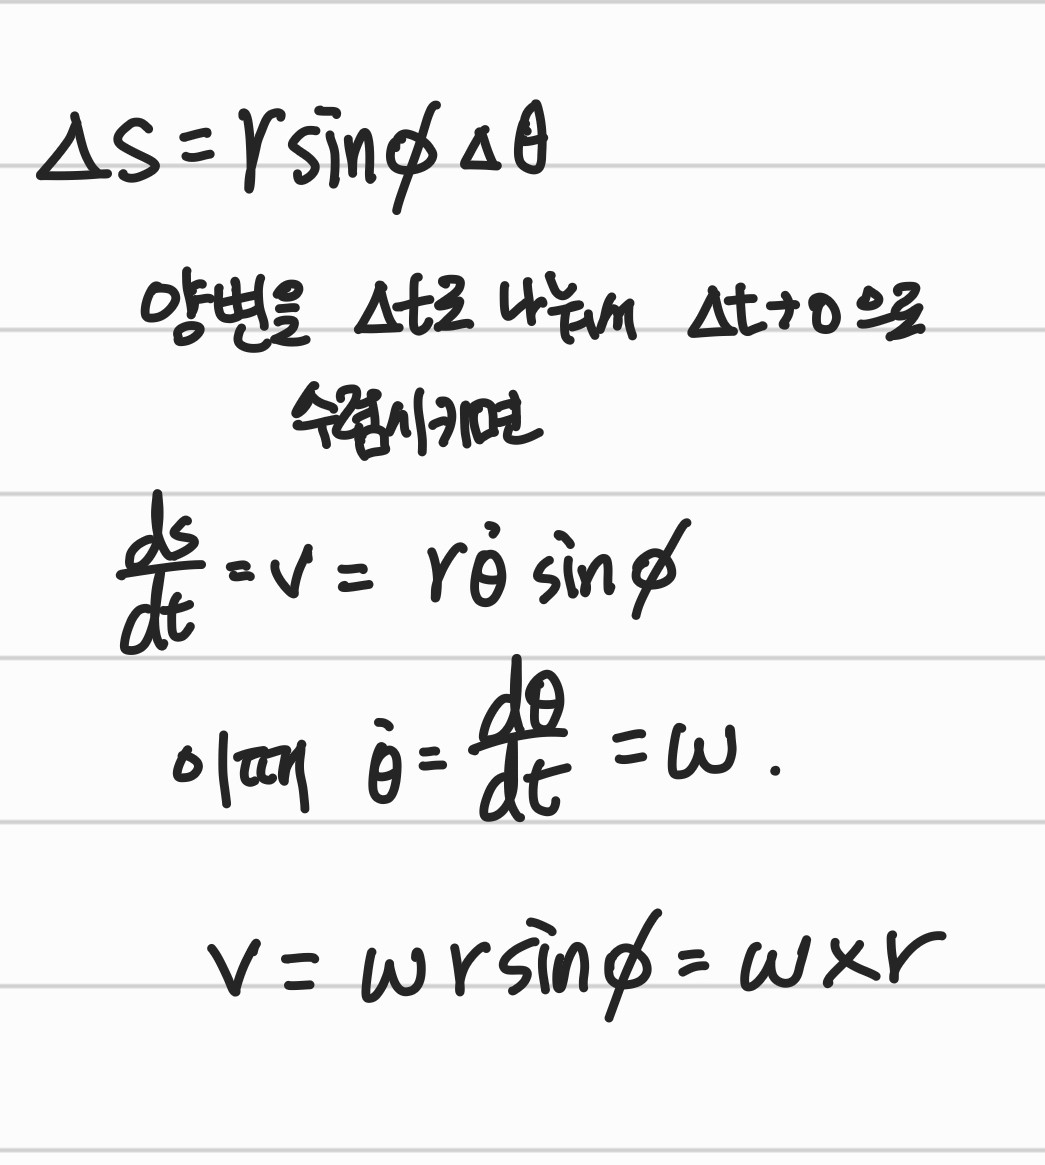 Δs = r sinϕ Δθ
양변을 Δt로 나누며 Δt→0 으로
수렴시키면
ds/dt = v = r θ̇ sinϕ
이때 θ̇ = dθ/dt = ω .
v = ω r sinϕ = ω × r